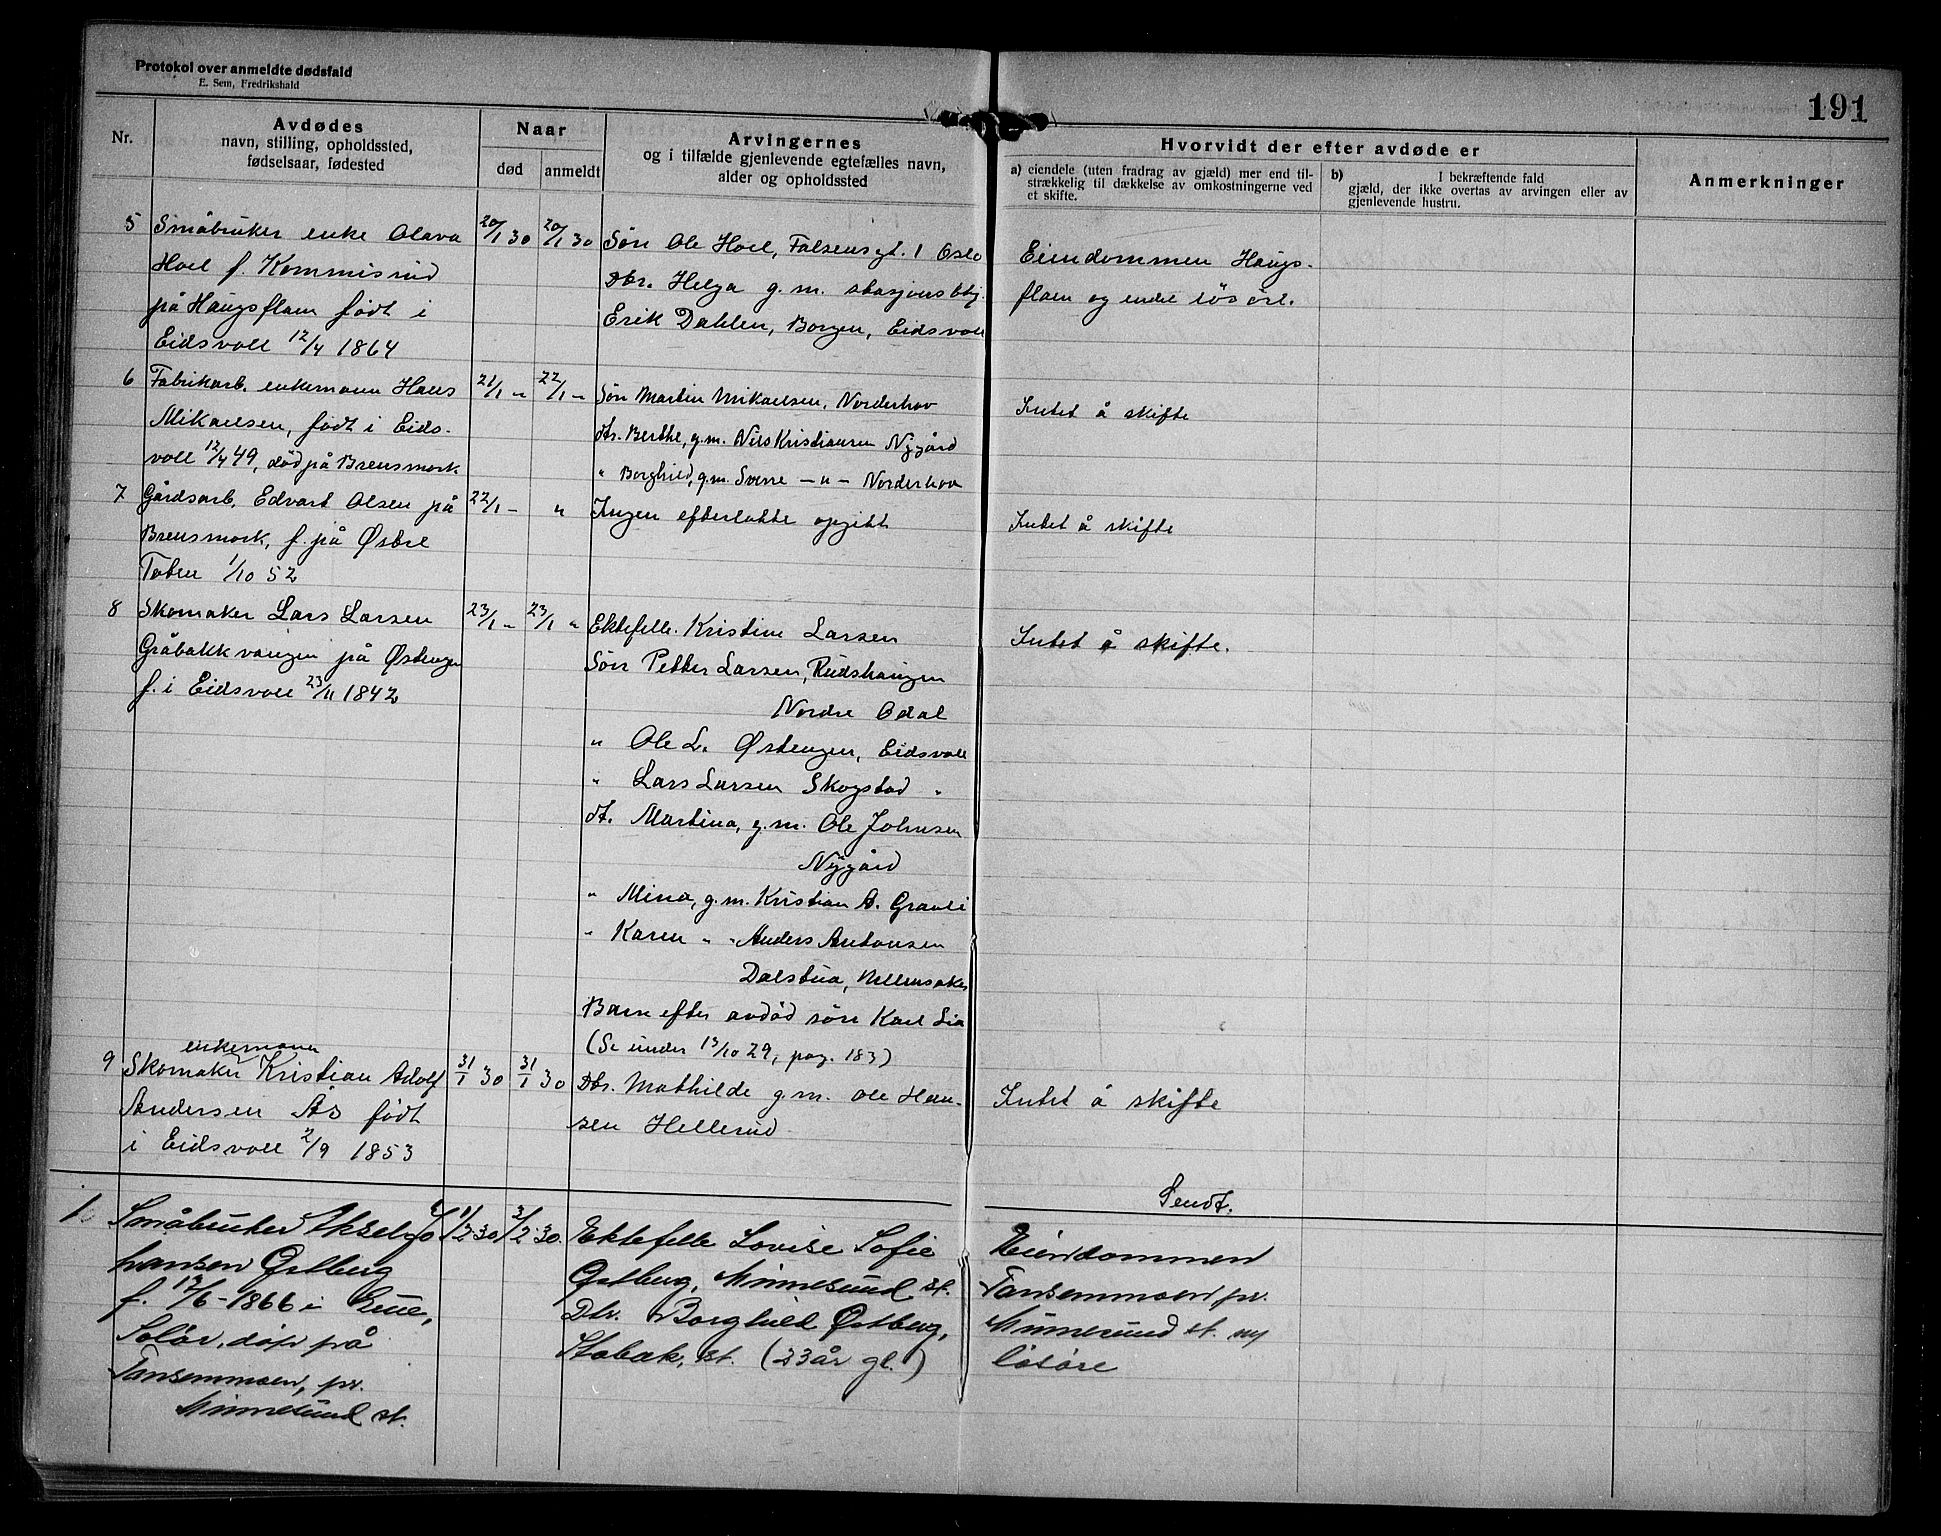 Protokol over anmeldte dødsfald
E. Sem, Fredrikshald
191
Nr.
Avdødes
navn, stilling, opholdssted,
fødselsaar, fødested
Naar
død
anmeldt
Arvingernes
og i tilfælde gjenlevende egtefælles navn,
alder og opholdssted
Hvorvidt der efter avdøde er
a) eiendele (uten fradrag av gjæld) mer end til-
strækkelig til dækkelse av omkostningerne ved
et skifte.
b) I bekræftende fald
gjæld, der ikke overtas av arvingen eller av
gjenlevende hustru.
Anmerkninger
5 Småbruker enke Olava
Hoel f. Kommisrud
på Haugsflaen født i
Eidsvoll 12/4 1864
20/1 30
20/1 30
Søn Ole Hoel, Falsensgt. 1 Oslo
Dtr. Helga g.m. stasjonsbtj.
Erik Dahlen, Borgen, Eidsvoll
Eiendommen Haugs-
flaen og endel løsøre.
6 Fabrikarb. enkemann Hans
Mikaelsen, født i Eids-
voll 12/4 49, død på Brensmork
21/1 "
22/1 "
Søn Martin Mikaelsen, Norderhov
dt. Berthe, g.m. Nils Kristiansen Nygård
" Borghild, g.m. Sverre — " — Norderhov
Intet å skifte
7 Gårdsarb. Edvart Olsen på
Brensmork, f. på Østre
Toten 1/10 52
22/1 -
"
Ingen efterlatte opgitt
Intet å skifte
8 Skomaker Lars Larsen
Gråbakkvangen på Østengen
f. i Eidsvoll 23/11 1842
23/1 "
23/1 "
Ektefelle. Kristine Larsen
Søn Petter Larsen, Rudshaugen
Nordre Odal
" Ole L. Østengen, Eidsvoll
" Lars Larsen Skogstad "
dt. Martina, g.m. Ole Johnsen
Nygård
" Mina, g.m. Kristian A. Gravli
" Karen " " Anders Antonsen
Dalstua, Nannestad
Barn efter avdød søn Karl Lia
(Se under 13/10 29, pag. 183)
Intet å skifte.
enkemann
9 Skomaker Kristian Adolf
Andersen Ås født
i Eidsvoll 2/9 1853
31/1 30
31/1 30
Dtr. Mathilde g.m. Ole Han-
sen Hellerud
Intet å skifte
Sendt.
1. Småbruker Aksel Jo
hansen Østberg
f. 17/6-1866 i Grue,
Solør, død på
Tansemmoen, pr.
Minnesund st.
1/2 30
3/2 30.
Ektefelle Lovise Sofie
Østberg, Minnesund st.
Dtr. Borghild Østberg,
Stabæk, st. (23 år gl.)
Eiendommen
Tansemmoen pr.
Minnesund st. og
løsøre